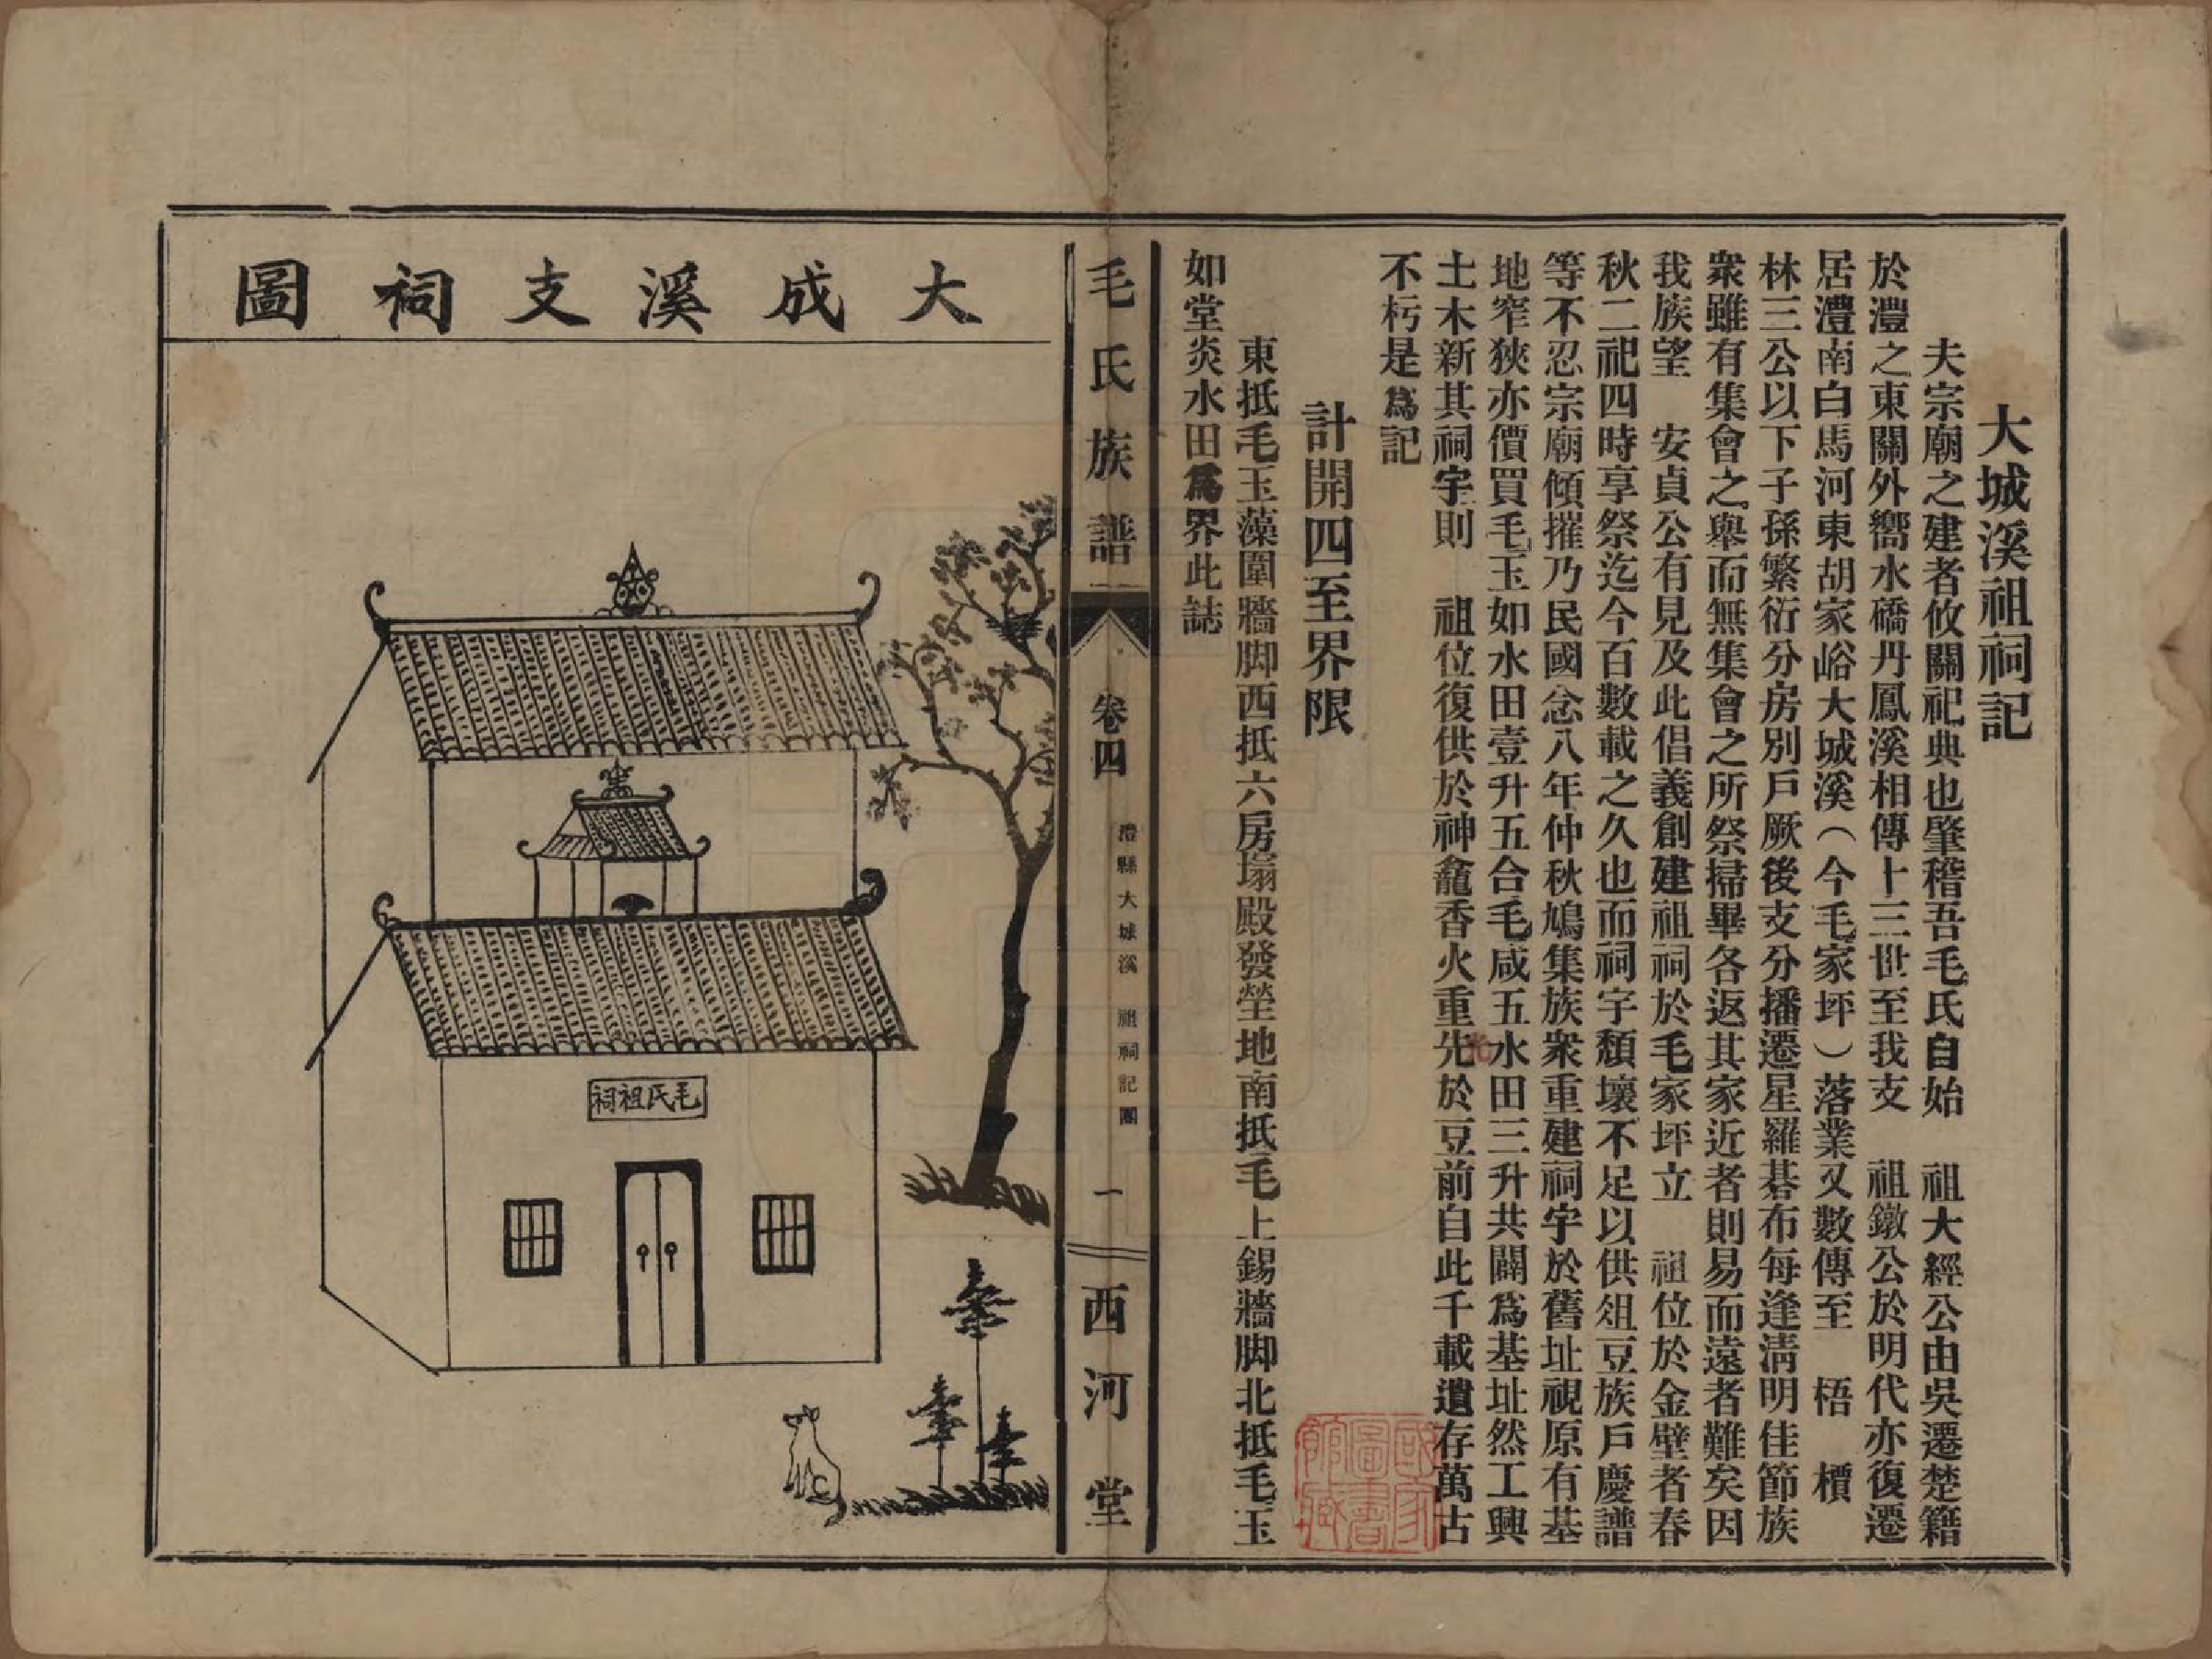 大城溪祖祠記
夫宗廟之建者攸關祀典也肇稽吾毛氏自始　祖大經公由吳遷楚籍
於澧之東關外嚮水磽丹鳳溪相傳十三世至我支　祖鐓公於明代亦復遷
居澧南白馬河東胡家峪大城溪（今毛家坪）落業又數傳至　梧　檟
林三公以下子孫繁衍分房別戶厥後支分播遷星羅碁布每逢清明佳節族
衆雖有集會之舉而無集會之所祭掃畢各返其家近者則易而遠者難矣因
我族望　安貞公有見及此倡義創建祖祠於毛家坪立　祖位於金壁者春
秋二祀四時享祭迄今百數載之久也而祠宇頹壞不足以供俎豆族戶慶譜
等不忍宗廟傾摧乃民國念八年仲秋鳩集族衆重建祠宇於舊址視原有基
地窄狹亦價買毛玉如水田壹升五合毛咸五水田三升共闢爲基址然工興
土木新其祠宇則　祖位復供於神龕香火重光於豆前自此千載遺存萬古
不朽是爲記
計開四至界限
東抵毛玉藻圍牆脚西抵六房塌殿發塋地南抵毛上錫牆脚北抵毛玉
如堂炎水田爲界此誌
毛氏族譜
卷四
澧縣大城溪　祖祠記圖
一
西河堂
大成溪支祠圖
毛氏祖祠
國家圖書館藏